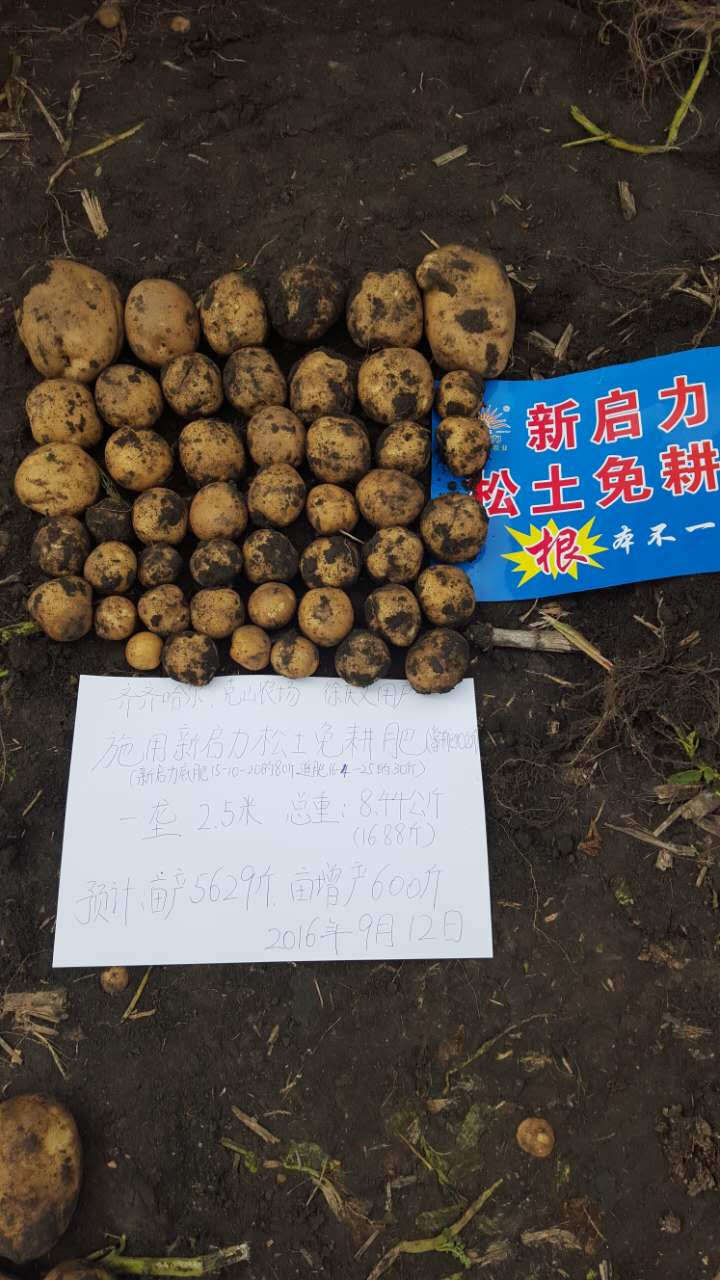 新启力
松土免耕
根 本不一
齐齐哈尔.克山农场
施用新启力松土免耕肥
(新启力底肥15-10-20的80斤追肥16-4-25的30斤)
一垄 2.5米 总重:8.44公斤
(16.88斤)
预计:亩产5629斤.亩增产600斤
2016年9月12日